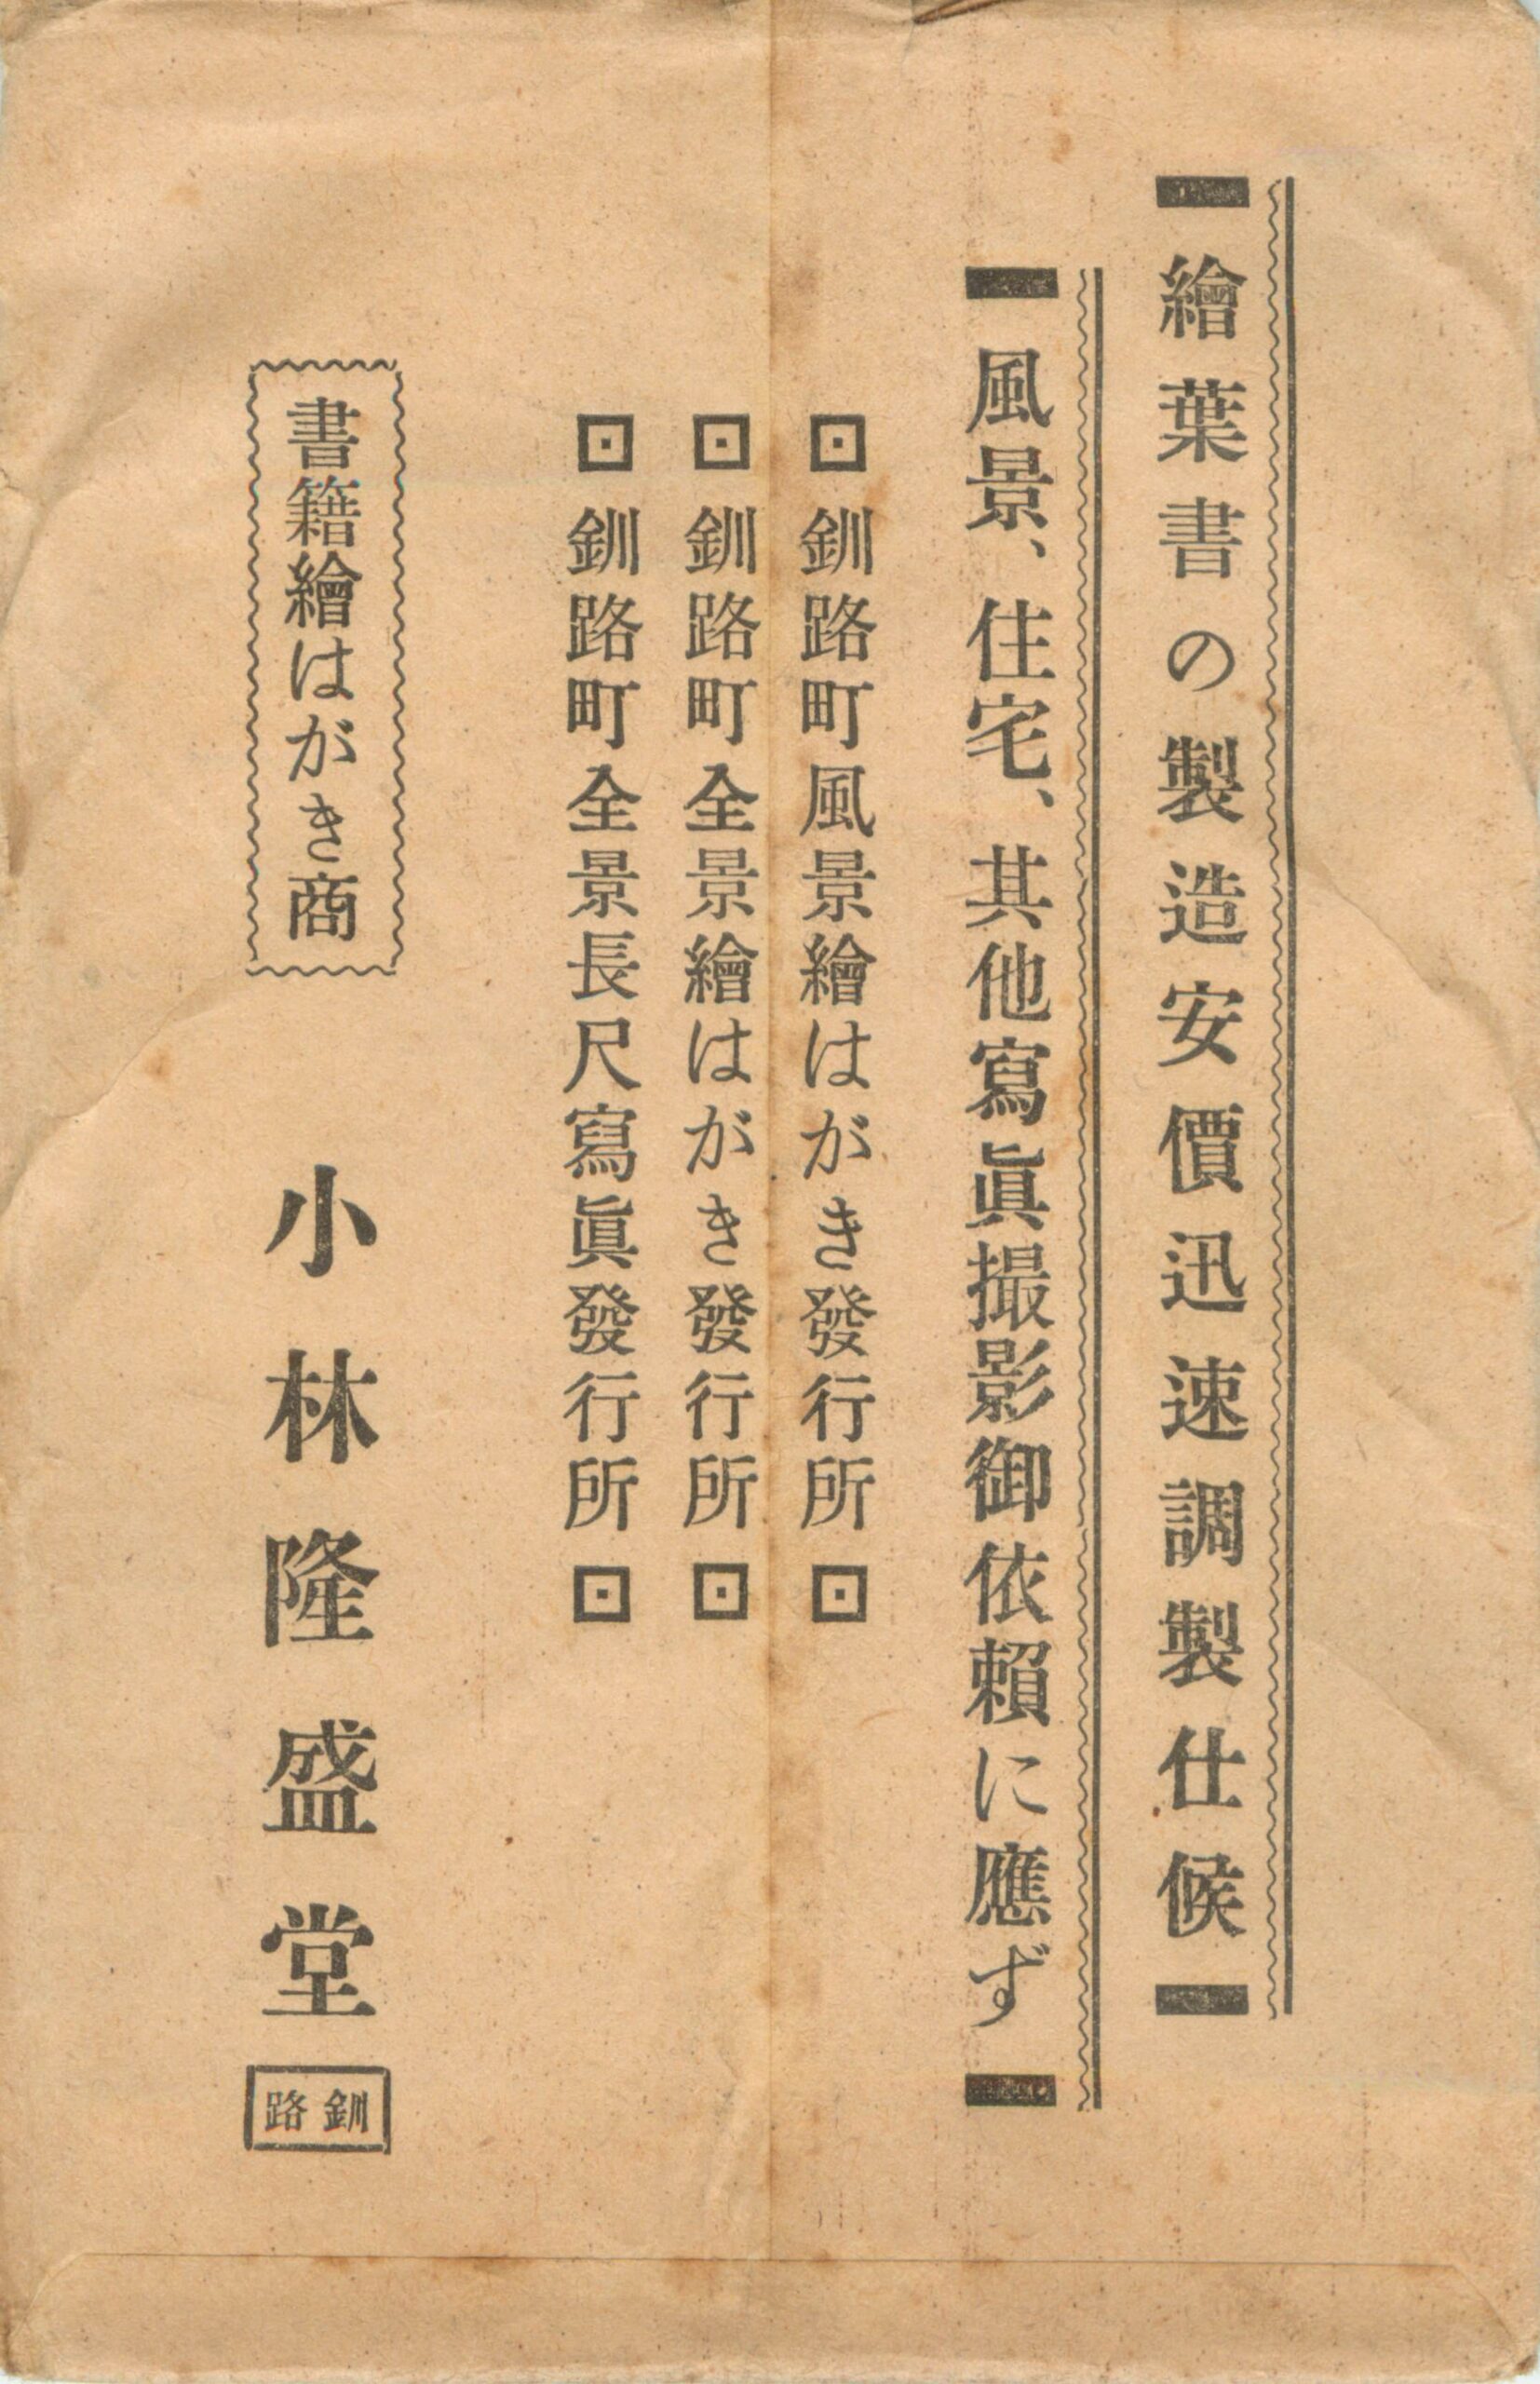 繪葉書の製造安價迅速調製仕候
風景、住宅、其他寫眞撮影御依賴に應ず
釧路町風景繪はがき發行所
釧路町全景繪はがき發行所
釧路町全景長尺寫眞發行所
書籍繪はがき商
小林隆盛堂
路釧